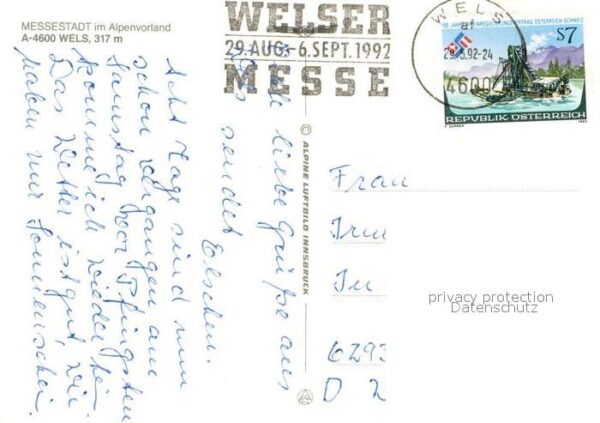 MESSESTADT im Alpenvorland
A-4600 WELS, 317 m
WELSER
29. AUG.- 6. SEPT. 1992
MESSE
WELS
a1
29.5.92-24
4600
100 JAHRE RHEINREGULIERUNGSVERTRAG ÖSTERREICH-SCHWEIZ
S7
REPUBLIK ÖSTERREICH
1992
Acht Tage sind nun
schon vergangen am
Samstag vor Pfingsten
komme ich wieder heim
Das Wetter ist gut, wir
haben nur Sonnenschein
liebe Grüße aus
sendet
Elschen.
© ALPINE LUFTBILD INNSBRUCK
Frau
Irm
In
6293
D 2
privacy protection
Datenschutz